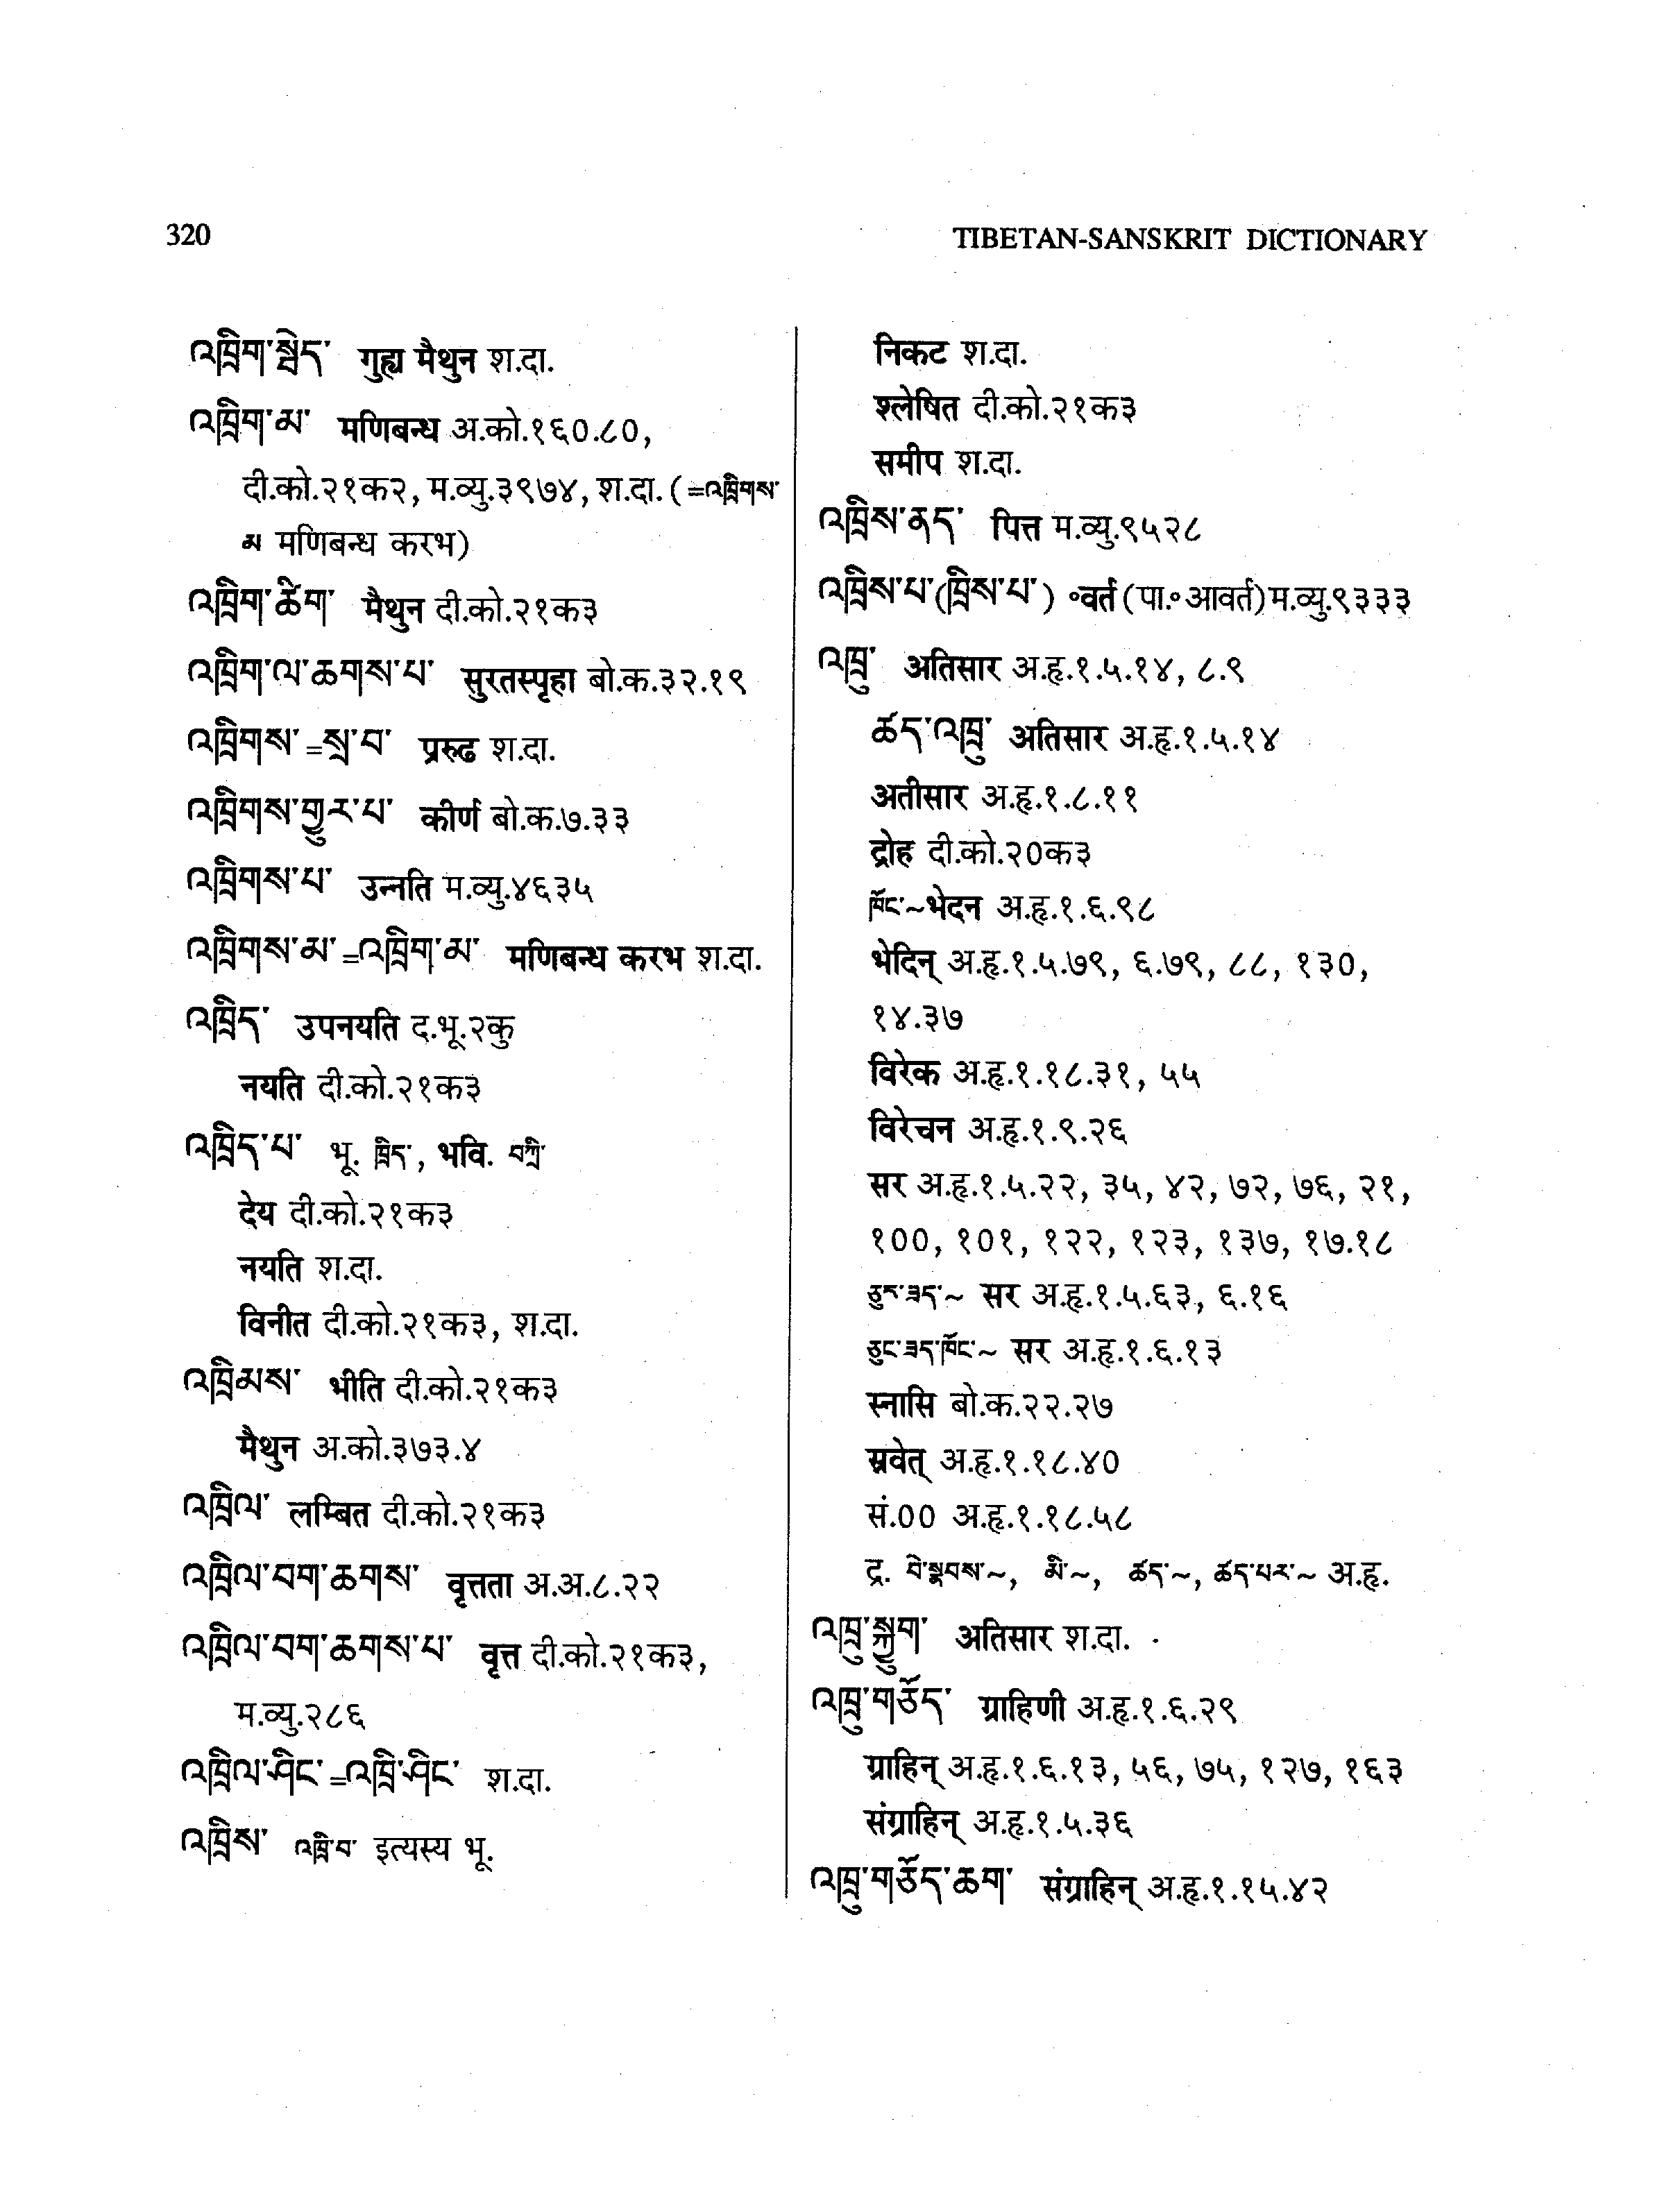 320
TIBETAN-SANSKRIT DICTIONARY
འཁྲིག་སྦེད་ गुह्य मैथुन श.दा.
འཁྲིག་མ་ मणिबन्ध अ.को.१६०.८०,
दी.को.२१क२, म.व्यु.३९७४, श.दा. (=འཁྲིགས་
མ मणिबन्ध करभ)
འཁྲིག་ཚིག་ मैथुन दी.को.२१क३
འཁྲིག་ལ་ཆགས་པ་ सुरतस्पृहा बो.क.३२.१९
འཁྲིགས་=སྲ་བ་ प्ररुढ श.दा.
འཁྲིགས་གྱུར་པ་ कीर्ण बो.क.७.३३
འཁྲིགས་པ་ उन्नति म.व्यु.४६३५
འཁྲིགས་མ་=འཁྲིག་མ་ मणिबन्ध करभ श.दा.
འཁྲིད་ उपनयति द.भू.२कु
नयति दी.को.२१क३
འཁྲིད་པ་ भू. ཁྲིད་, भवि. བཀྲི་
देय दी.को.२१क३
नयति श.दा.
विनीत दी.को.२१क३, श.दा.
འཁྲིམས་ भीति दी.को.२१क३
मैथुन अ.को.३७३.४
འཁྲིལ་ लम्बित दी.को.२१क३
འཁྲིལ་བག་ཆགས་ वृत्तता अ.अ.८.२२
འཁྲིལ་བག་ཆགས་པ་ वृत्त दी.को.२१क३,
म.व्यु.२८६
འཁྲིལ་ཤིང་=འཁྲི་ཤིང་ श.दा.
འཁྲིས་ འཁྲི་བ་ इत्यस्य भू.
निकट श.दा.
श्लेषित दी.को.२१क३
समीप श.दा.
འཁྲིས་ནད་ पित्त म.व्यु.९५२८
འཁྲིས་པ་(ཁྲིས་པ་) ॰वर्त (पा.॰आवर्त)म.व्यु.९३३३
འཁྲུ་ अतिसार अ.हृ.१.५.१४, ८.९
ཚད་འཁྲུ་ अतिसार अ.हृ.१.५.१४
अतीसार अ.हृ.१.८.११
द्रोह दी.को.२०क३
ཁོང་~भेदन अ.हृ.१.६.९८
भेदिन् अ.हृ.१.५.७९, ६.७९, ८८, १३०,
१४.३७
विरेक अ.हृ.१.१८.३१, ५५
विरेचन अ.हृ.१.९.२६
सर अ.हृ.१.५.२२, ३५, ४२, ७२, ७६, २१,
१००, १०१, १२२, १२३, १३७, १७.१८
ཅུང་ཟད་~ सर अ.हृ.१.५.६३, ६.१६
ཅུང་ཟད་ཁོང་~ सर अ.हृ.१.६.१३
स्नासि बो.क.२२.२७
स्रवेत् अ.हृ.१.१८.४०
सं.०० अ.हृ.१.१८.५८
द्र. བེ་སྣབས་~, མི་~, ཚད་~, ཚད་པར་~ अ.हृ.
འཁྲུ་སྐྱུག་ अतिसार श.दा.
འཁྲུ་གཅོད་ ग्राहिणी अ.हृ.१.६.२९
ग्राहिन् अ.हृ.१.६.१३, ५६, ७५, १२७, १६३
संग्राहिन् अ.हृ.१.५.३६
འཁྲུ་གཅོད་ཆག་ संग्राहिन् अ.हृ.१.१५.४२